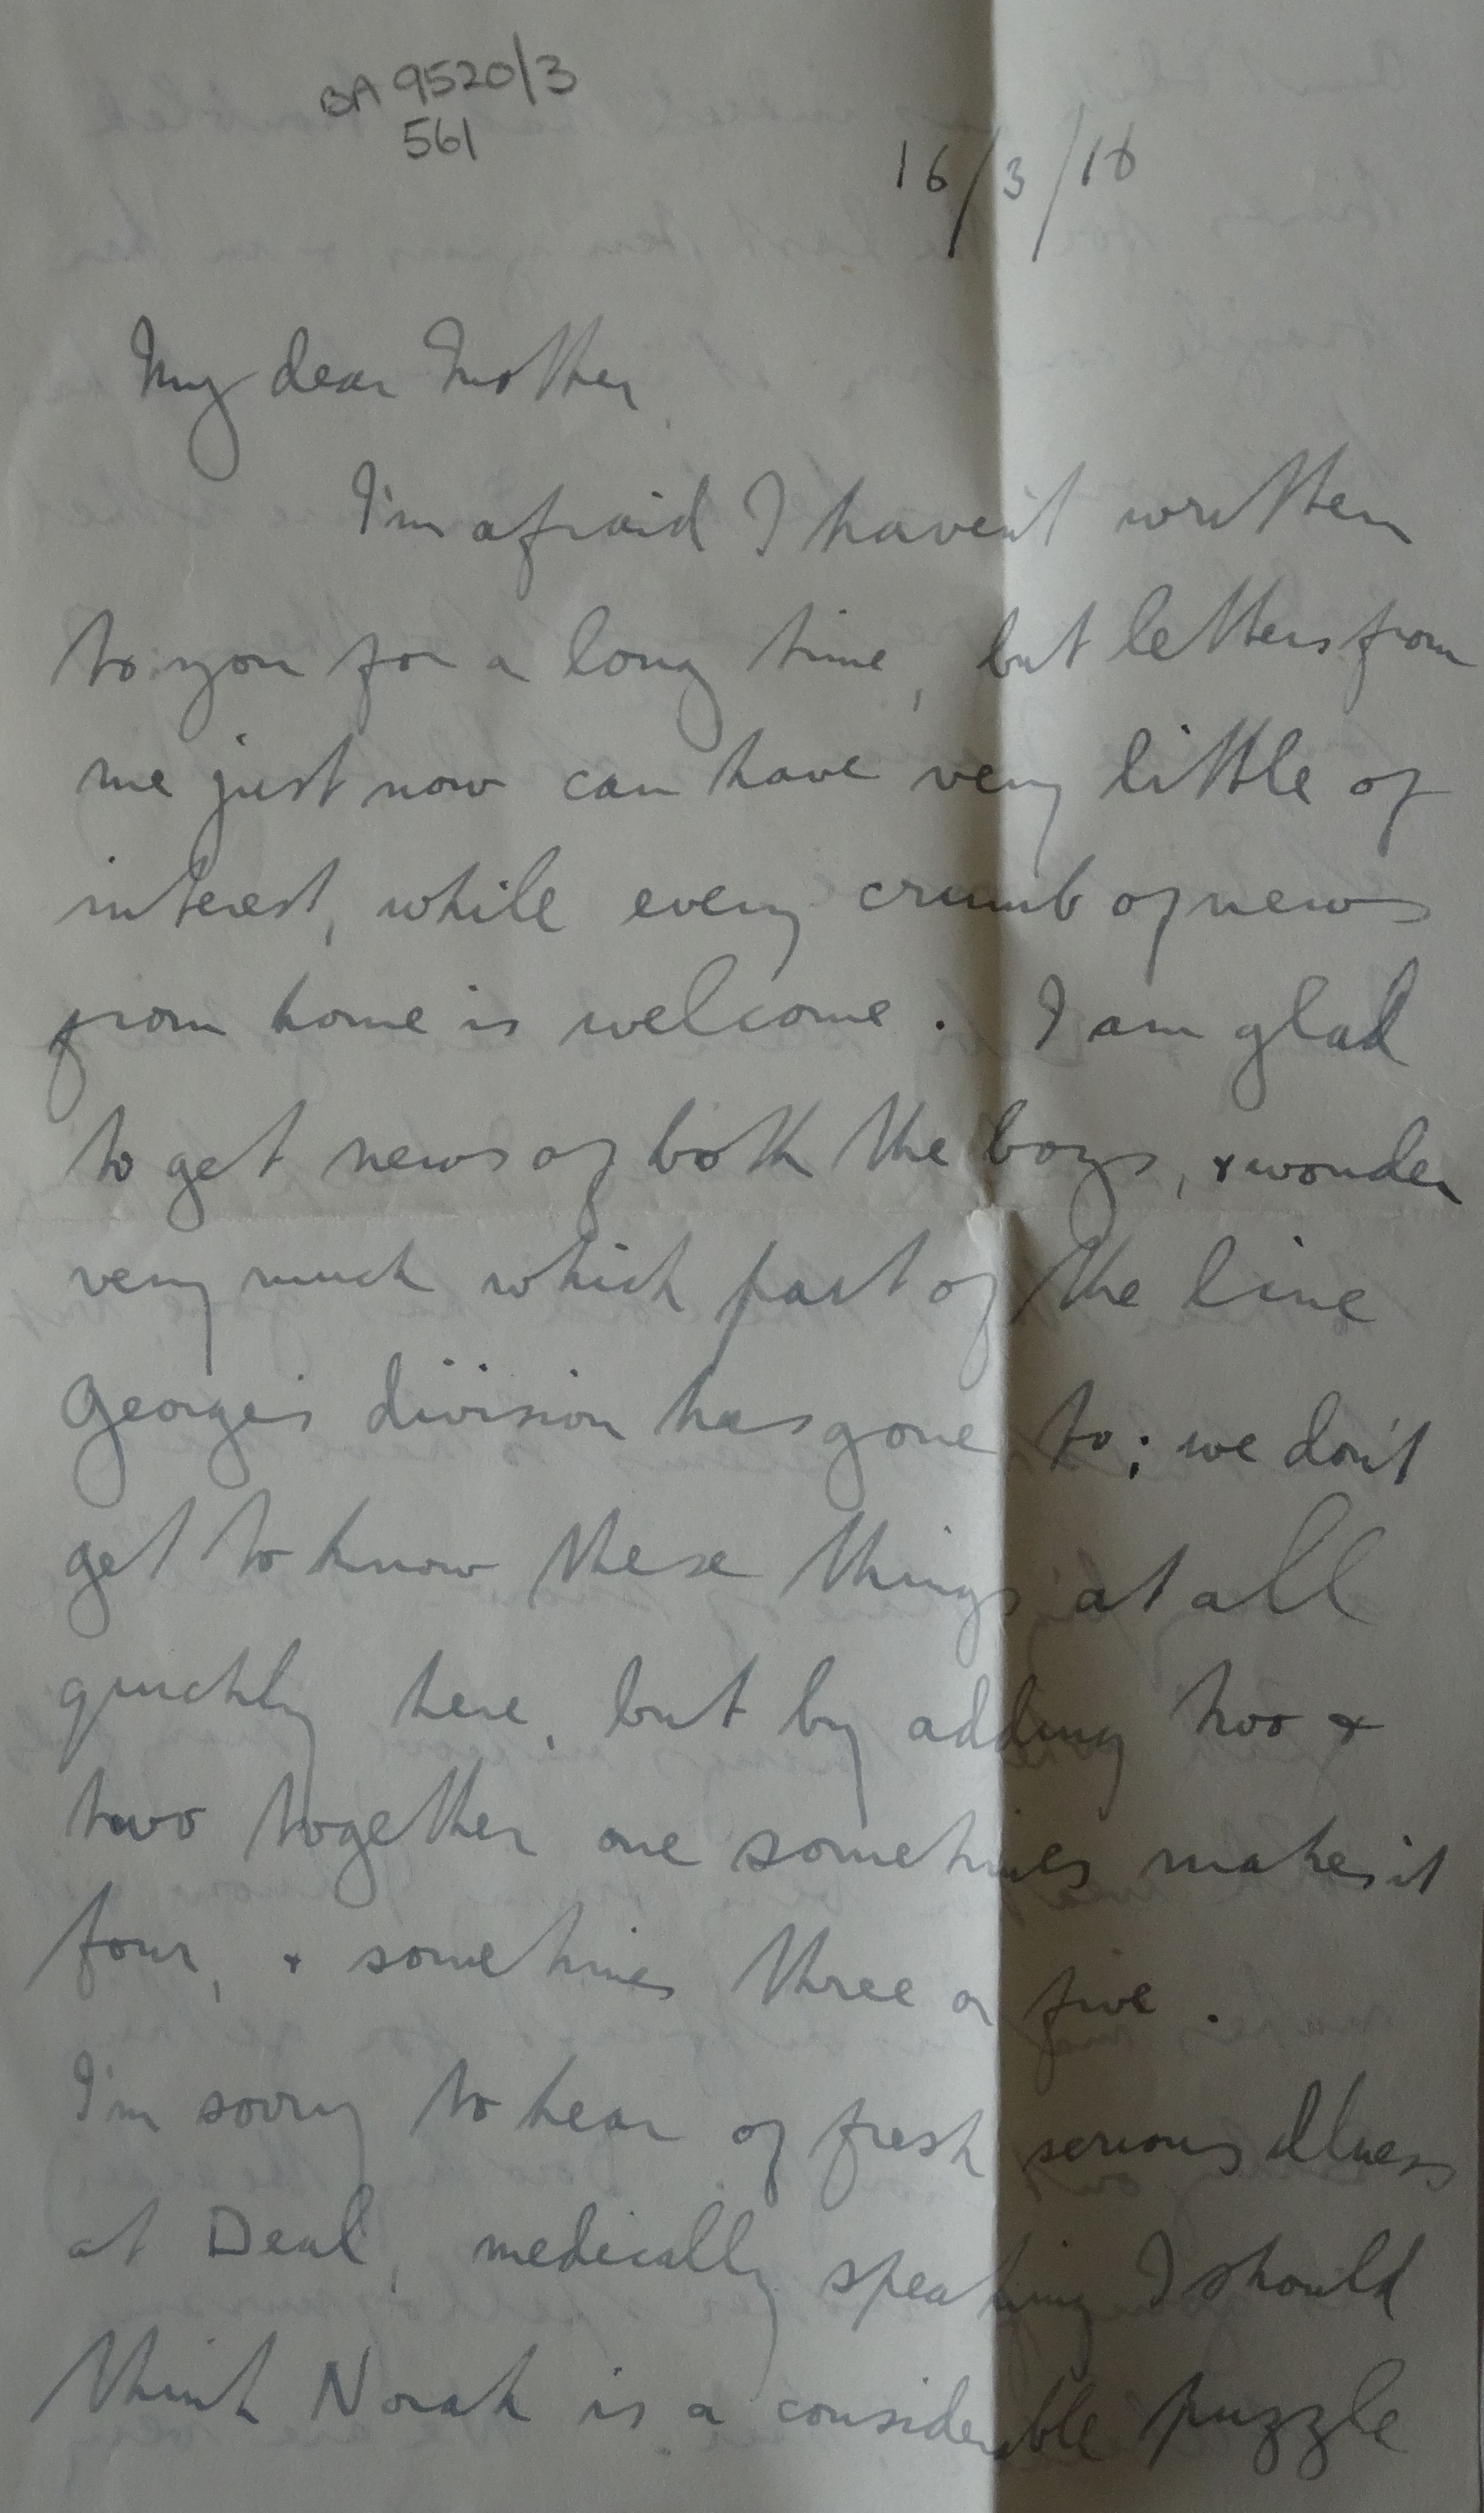 BA 9520/3
561
16/3/18
My dear Mother
I'm afraid I haven't written
to you for a long time, but letters from
me just now can have very little of
interest, while every crumb of news
from home is welcome. I am glad
to get news of both the boys, & wonder
very much which part of the line
George's division has gone to; we don't
get to know these things at all
quickly here, but by adding two &
two together one sometimes makes it
four, & sometimes three or five.
I'm sorry to hear of fresh serious illness
at Deal, medically speaking I should
think Norah is a considerable puzzle